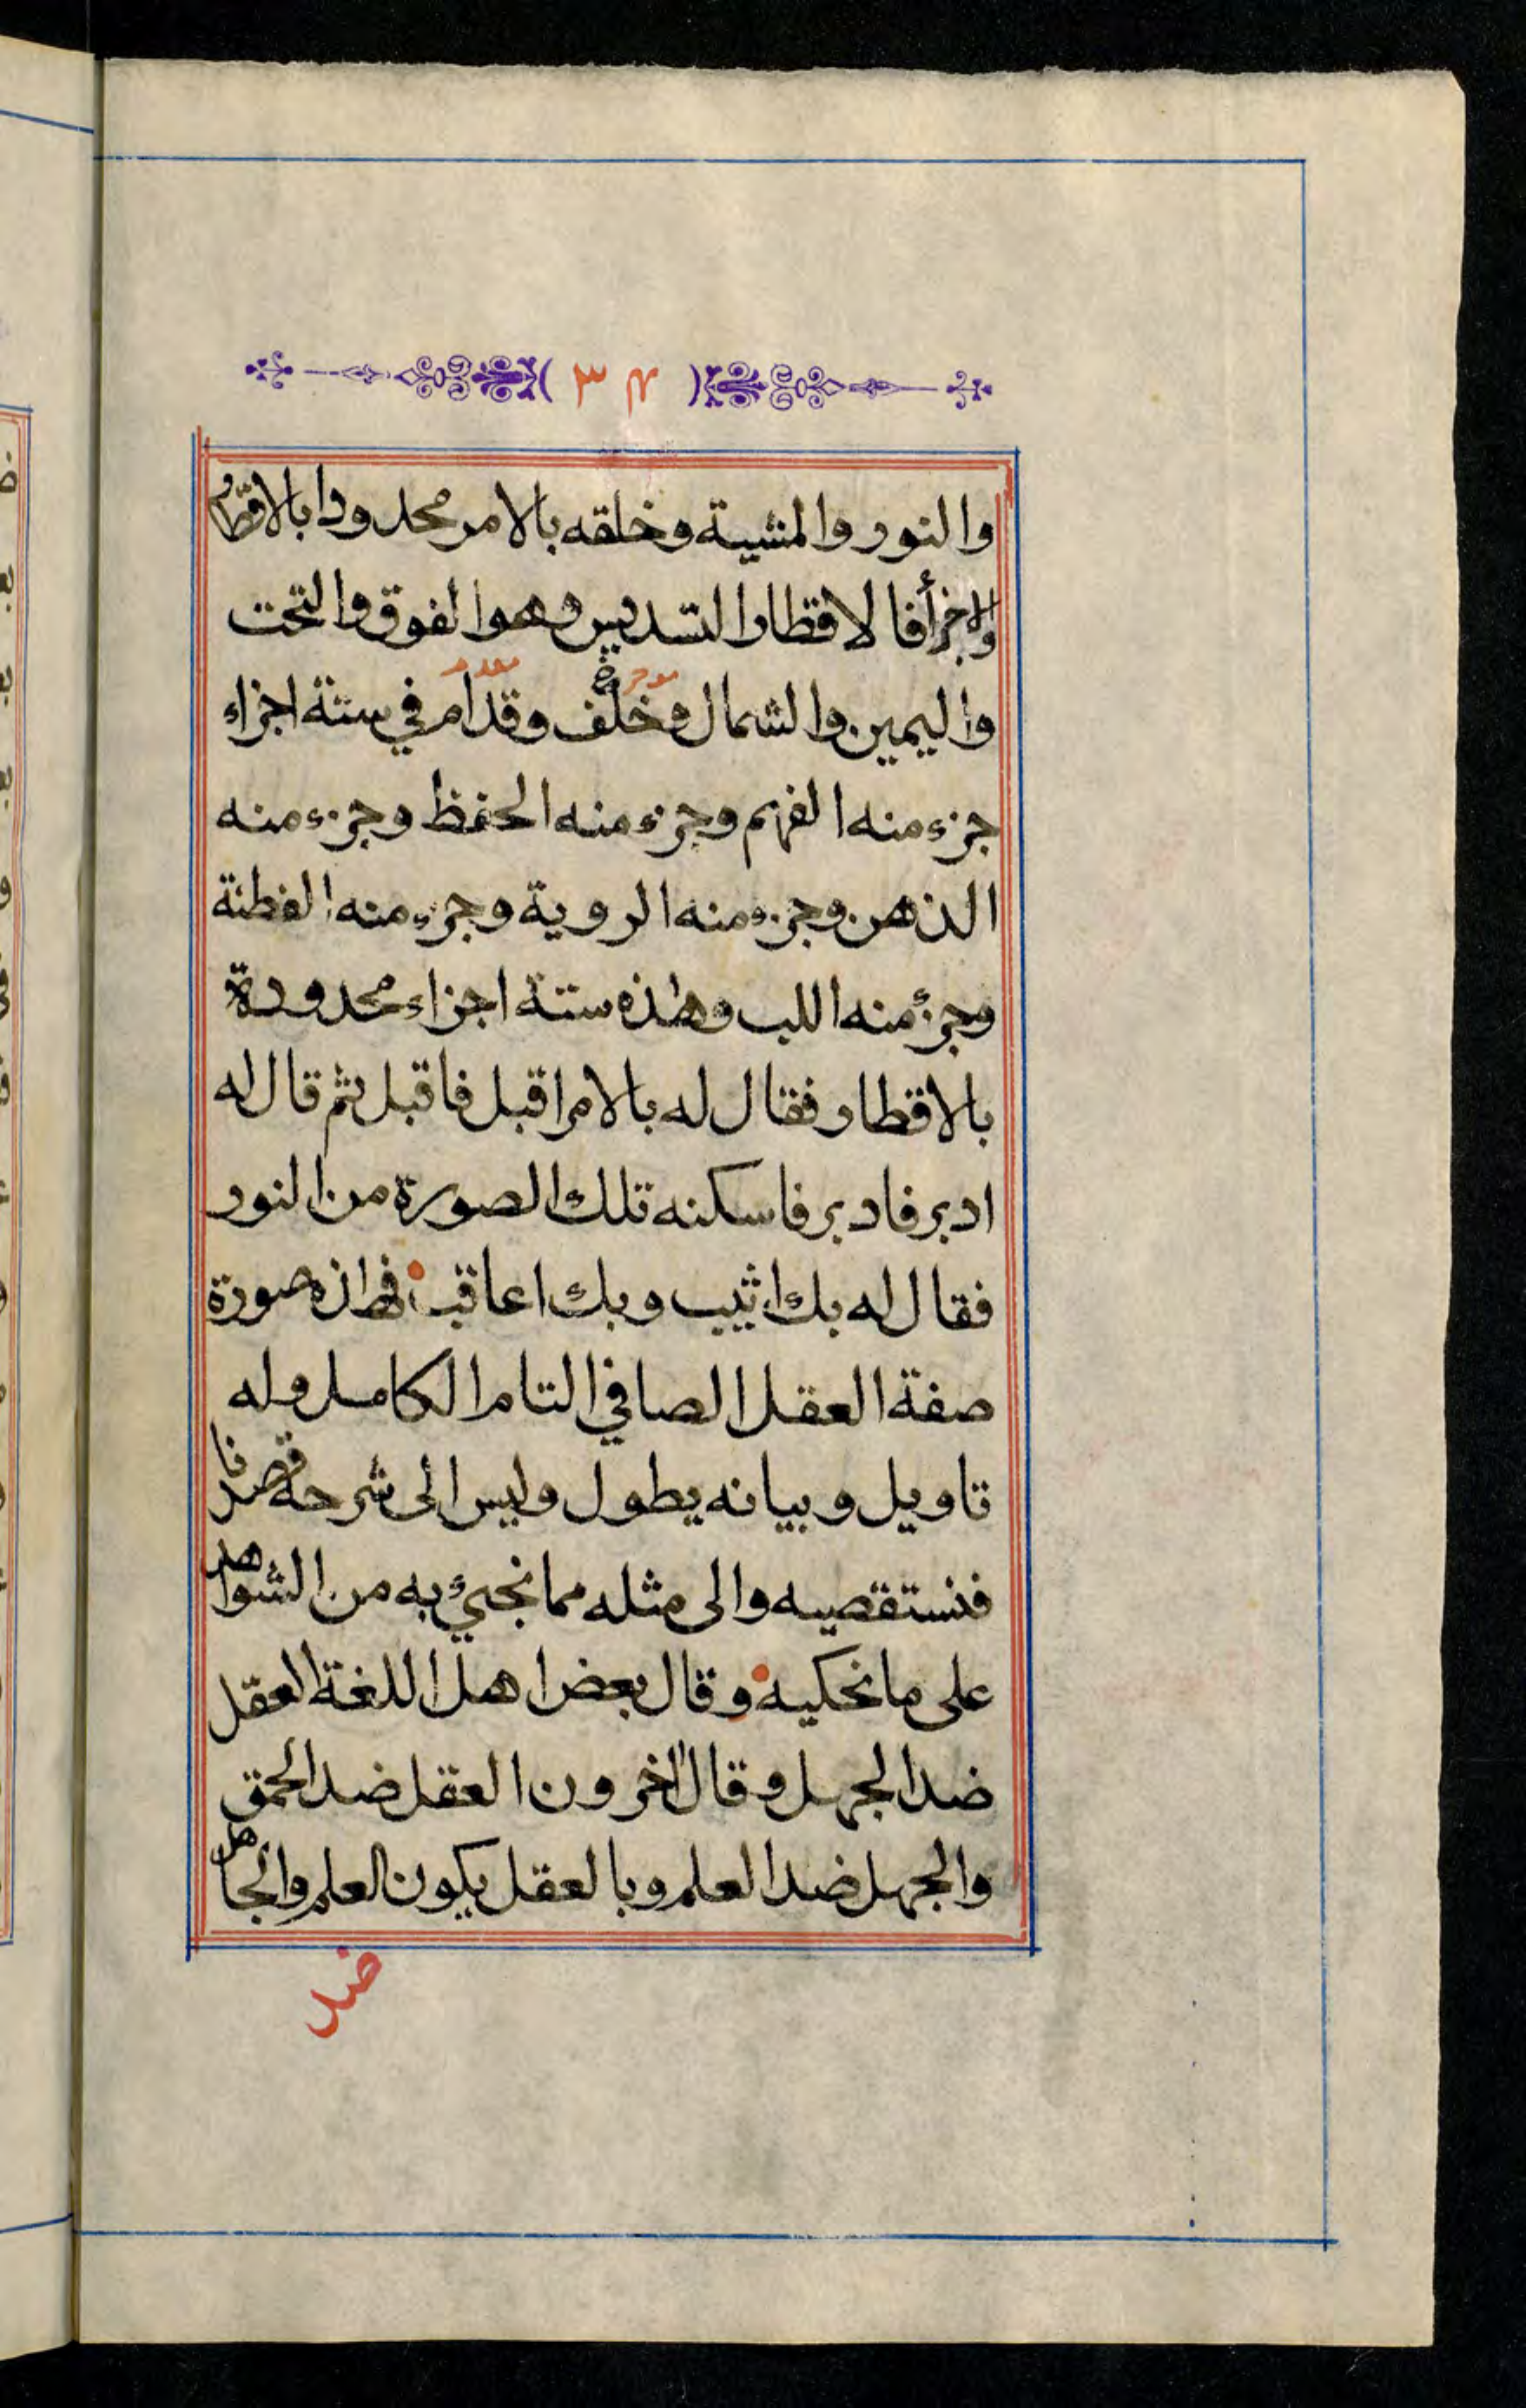 ٣٤
والنور والمشية وخلقه بالامر محدودا بالاقطار
والاجزأ فالاقطار التسديس وهو الفوق والتحت
واليمين والشمال وخلف وقدام في ستة اجزاء
جزء منه الفهم وجزء منه الحفظ وجزء منه
الذهن وجزء منه الروية وجزء منه الفطنة
وجزء منه اللب وهذه ستة اجزاء محدودة
بالاقطار فقال له بالامر اقبل فاقبل ثم قال له
ادبر فادبر فاسكنه تلك الصورة من النور
فقال له بك اثيب وبك اعاقب فهذه صورة
صفة العقل الصافي التام الكامل وله
تاويل وبيانه يطول وليس الى شرحه قصدنا
فنستقصيه والى مثله مما نجيء به من الشواهد
على ما نحكيه وقال بعض اهل اللغة العقل
ضد الجهل وقال اخرون العقل ضد الحمق
والجهل ضد العلم وبالعقل يكون العلم والجاهل
ضد